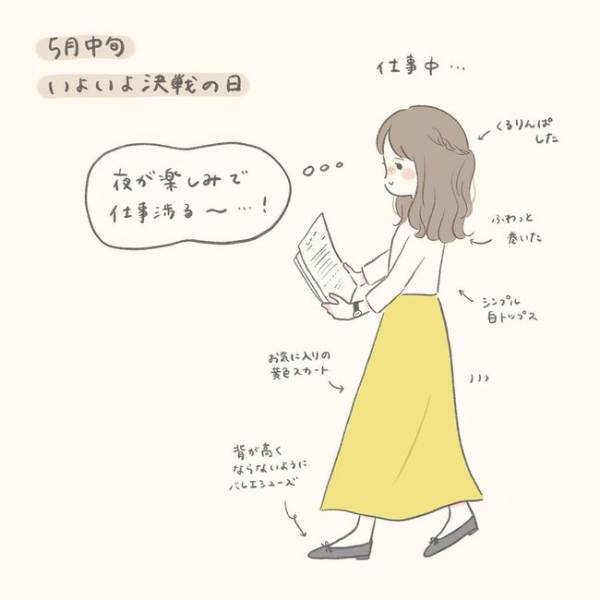 5月中旬
いよいよ決戦の日
仕事中…
くるりんぱ
した
夜が楽しみで
仕事捗る〜…!
ふわっと
巻いた
シンプル
白トップス
お気に入りの
黄色スカート
背が高く
ならないように
バレエシューズ